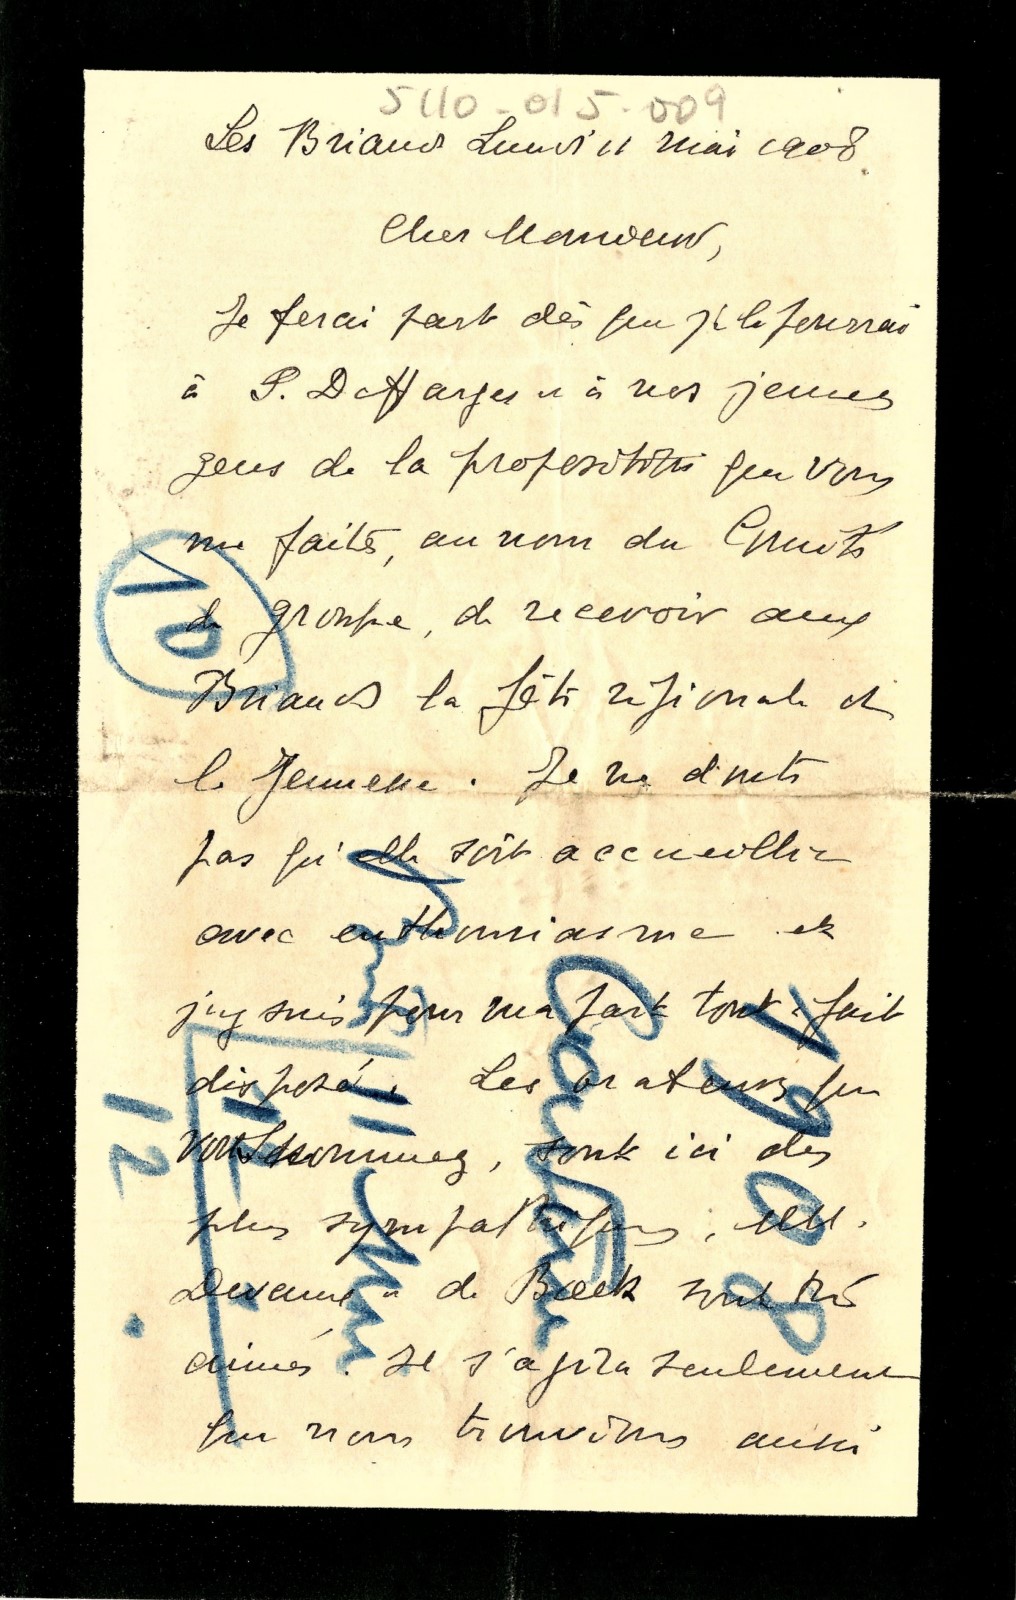 5110-015-009
Les Briands Lundi 11 mai 1908.
Cher Monsieur,
Je ferai part dès que je le pourrai
à P. Daffarges et à nos jeunes
gens de la proposition que vous
me faites, au nom du Comité
de groupe, de recevoir aux
Briands la fête régionale de
la Jeunesse. Je ne doute
pas qu'elle soit accueillie
avec enthousiasme et
j'y suis pour ma part tout à fait
disposé. Les orateurs que
vous nommez, sont ici des
plus sympathiques, MM.
Devaux et de Boeck sont très
aimés. Il s'agira seulement
que nous trouvions aussi
10
1908
12
12.